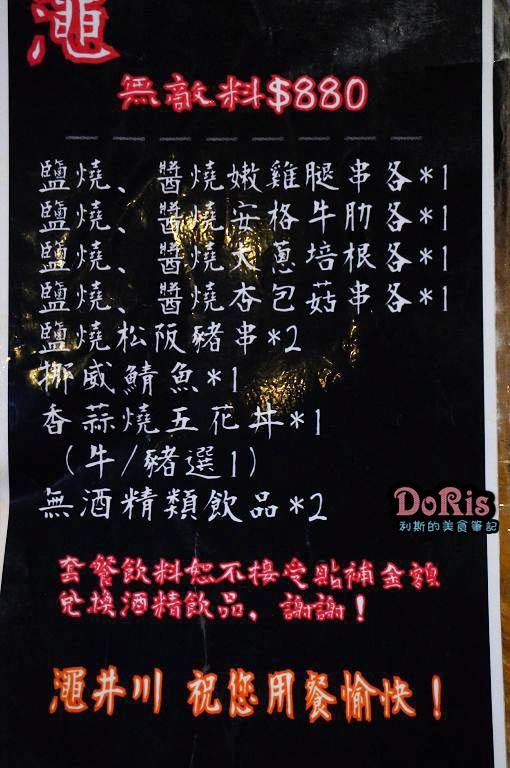 澠
無敵料$880
鹽燒、醬燒嫩雞腿串各*1
鹽燒、醬燒安格牛肋各*1
鹽燒、醬燒大蔥培根各*1
鹽燒、醬燒杏包菇串各*1
鹽燒松阪豬串*2
挪威鯖魚*1
香蒜燒五花丼*1
(牛/豬選1)
無酒精類飲品*2
DoRis
利斯的美食筆記
套餐飲料恕不接受貼補金額
兌換酒精飲品，謝謝！
澠井川 祝您用餐愉快！